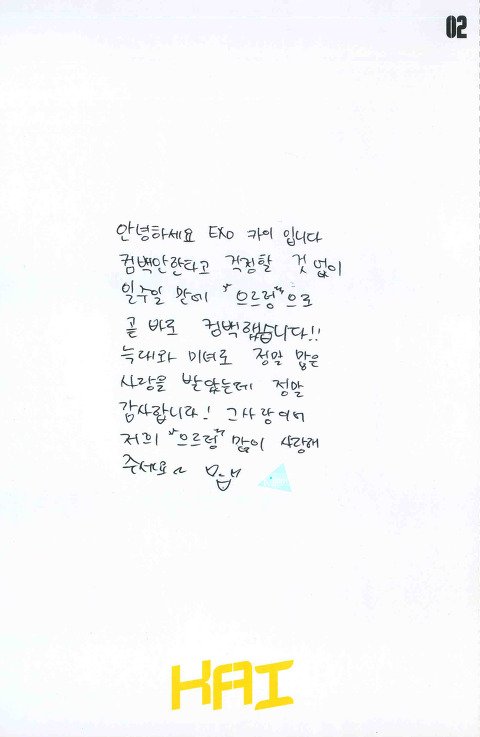 02
안녕하세요 EXO 카이 입니다
컴백안한다고 걱정할 것 없이
일주일 만에 "으르렁"으로
곧 바로 컴백했습니다!!
늑대와 미녀로 정말 많은
사랑을 받았는데 정말
감사합니다! 그사랑이어
저희 "으르렁" 많이 사랑해
주세요~
KAI